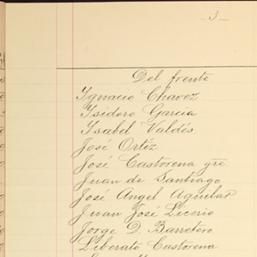 3
Del frente
Ygnacio Chavez
Ysidoro Garcia
Ysabel Valdés
José Ortíz
José Castorena
Juan de Santiago
José Angel Aguilar
Juan José Licerio
Jorge D. Barretero
Liberato Castorena